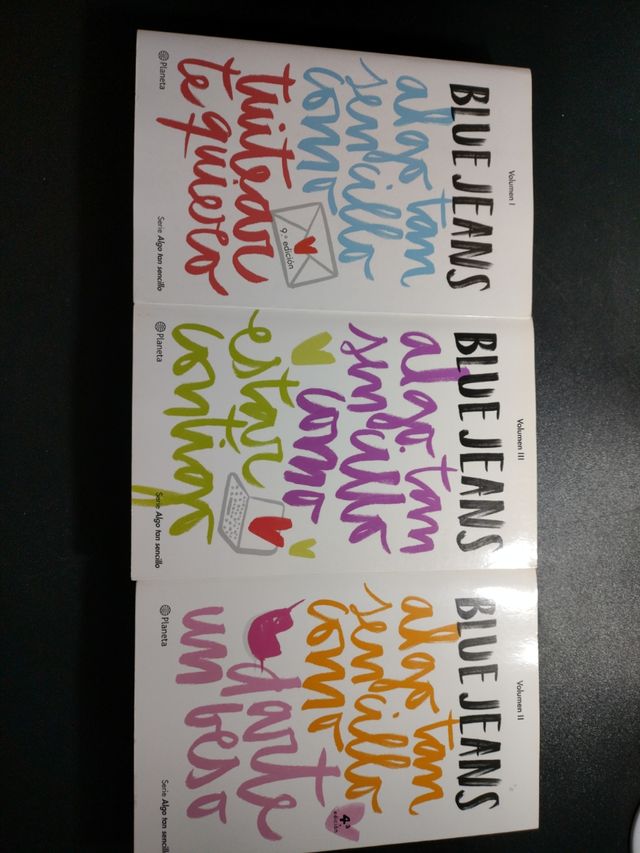 Volumen I
BLUE JEANS
algo tan
sencillo
como
tuitear
te quiero
9.ª edición
Planeta
Serie Algo tan sencillo
Volumen III
BLUE JEANS
algo tan
sencillo
como
estar
contigo
Planeta
Serie Algo tan sencillo
Volumen II
BLUE JEANS
algo tan
sencillo
como
darte
un beso
4.ª
edición
Planeta
Serie Algo tan sencillo